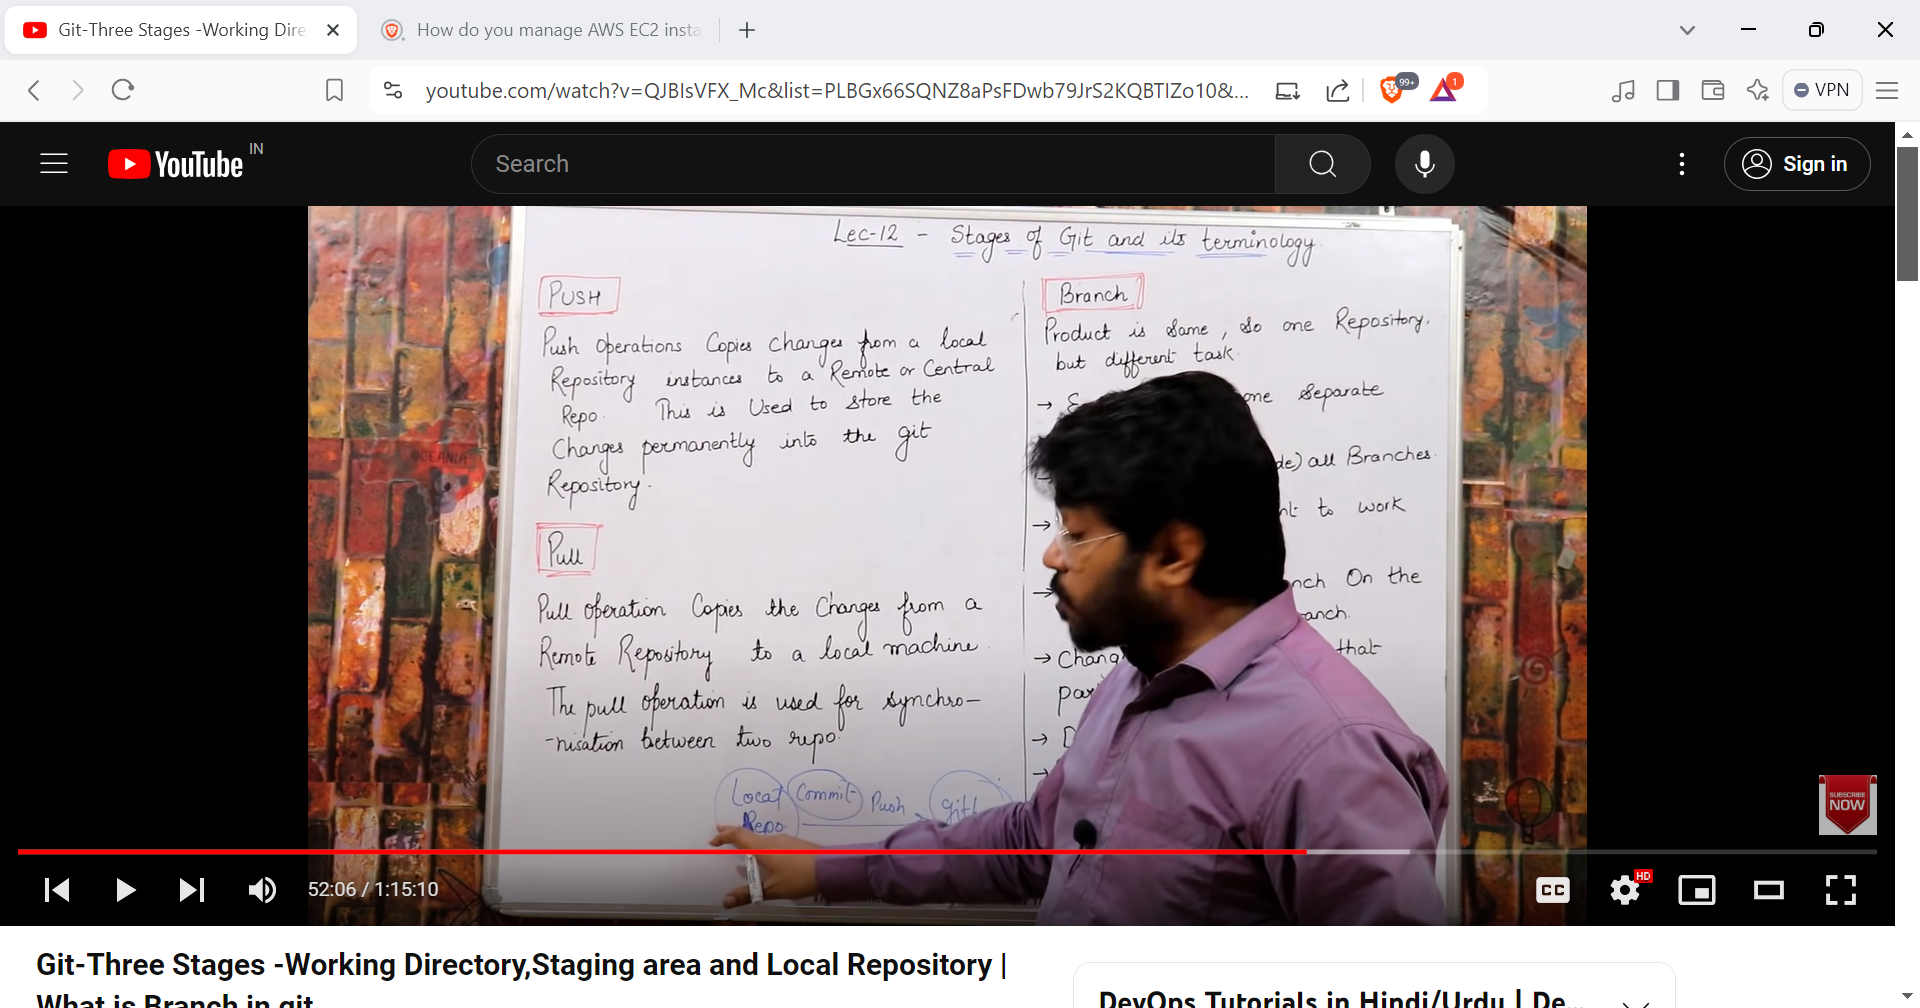 Git-Three Stages -Working Dire
How do you manage AWS EC2 insta
youtube.com/watch?v=QJBIsVFX_Mc&list=PLBGx66SQNZ8aPsFDwb79JrS2KQBTIZo10&...
99+
1
VPN
YouTube IN
Search
Sign in
Lec-12 - Stages of Git and its terminology
PUSH
Push Operations Copies changes from a local
Repository instances to a Remote or Central
Repo. This is Used to store the
Changes permanently into the git
Repository.
Pull
Pull operation Copies the Changes from a
Remote Repository to a local machine.
The pull operation is used for synchro-
-nisation between two repo.
Local Commit Push
Repo.
Branch
Product is same, so one Repository.
but different task.
→ one separate
all Branches.
→ to work
→ On the
→ that
→
→
OCEANIA
SUBSCRIBE
NOW
52:06 / 1:15:10
CC
HD
Git-Three Stages -Working Directory,Staging area and Local Repository |
What is Branch in git
DevOps Tutorials in Hindi/Urdu | De...